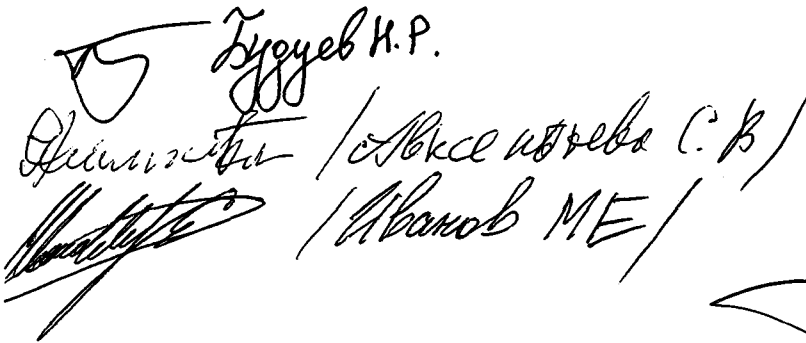 Будуев Н.Р.
/Авксентьева С.В/
/Иванов МЕ/